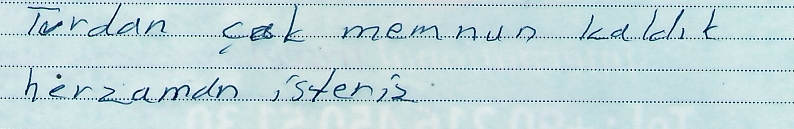 Turdan çok memnun kaldık
herzaman isteriz